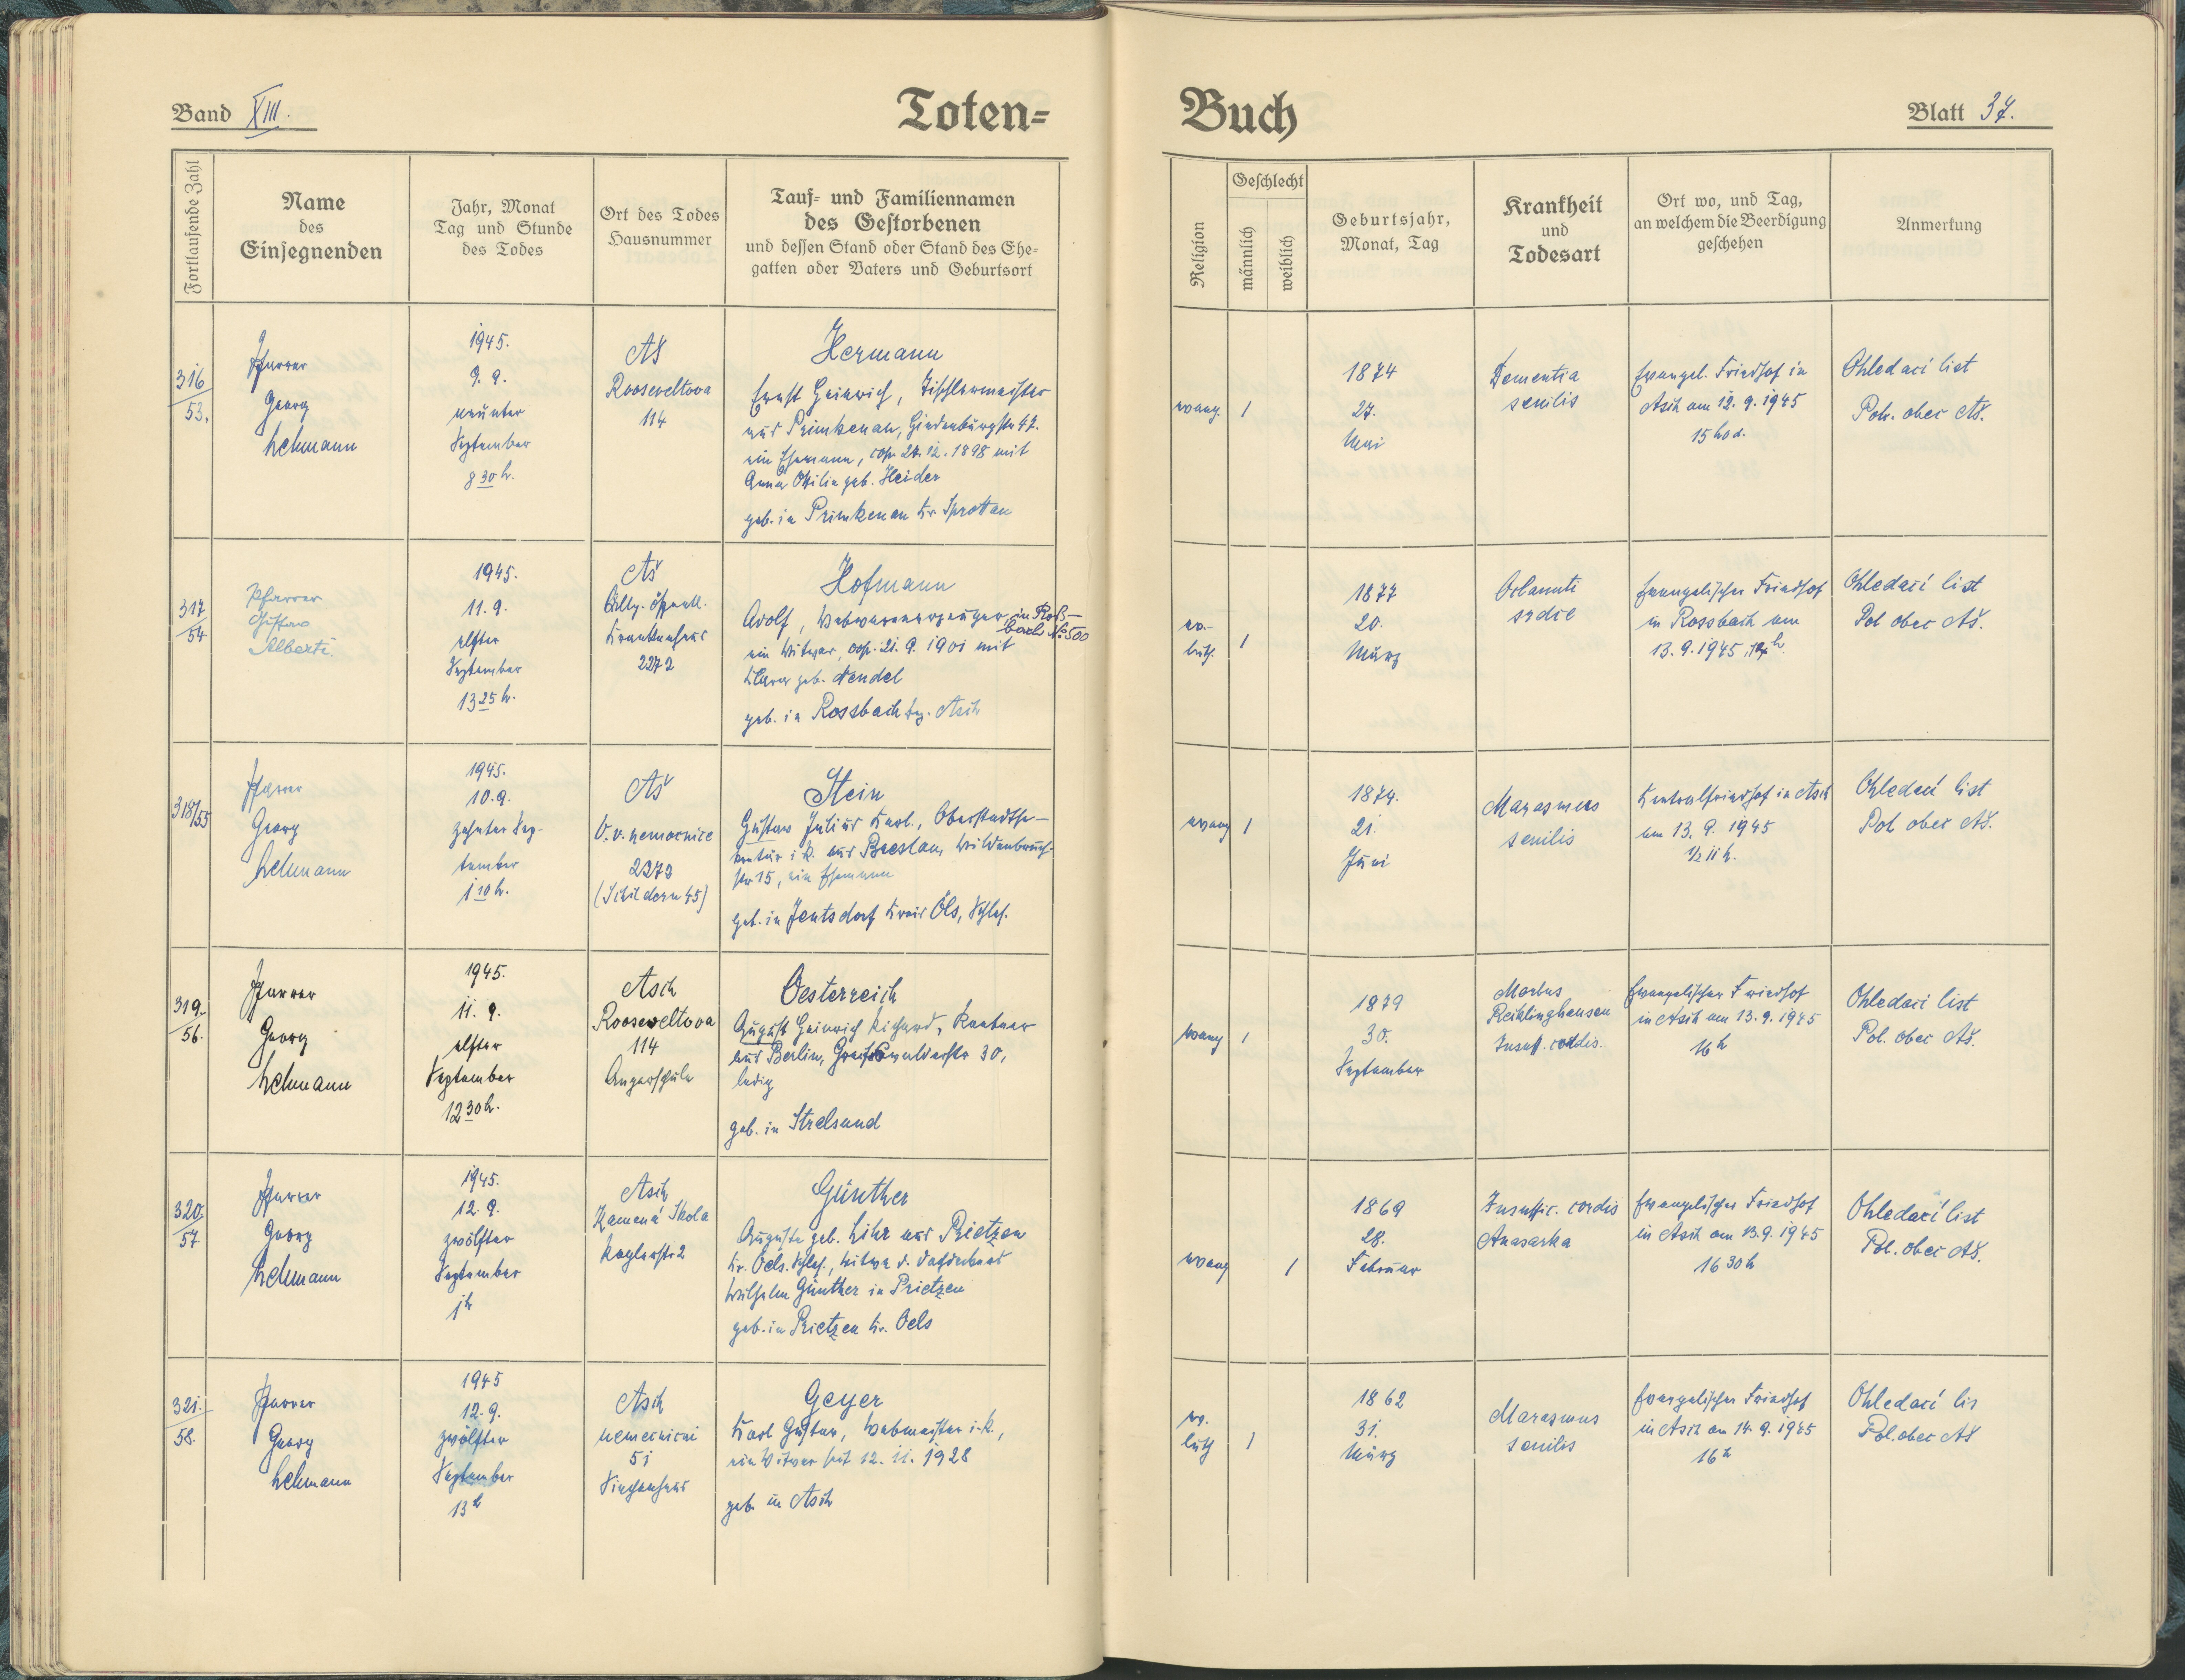 Band XIII.
Toten-
Buch
Blatt 37.
Fortlaufende Zahl
Name
des
Einsegnenden
Jahr, Monat
Tag und Stunde
des Todes
Ort des Todes
Hausnummer
Tauf- und Familiennamen
des Gestorbenen
und dessen Stand oder Stand des Ehe-
gatten oder Vaters und Geburtsort
Religion
Geschlecht
männlich
weiblich
Geburtsjahr,
Monat, Tag
Krankheit
und
Todesart
Ort wo, und Tag,
an welchem die Beerdigung
geschehen
Anmerkung
316
53.
Pfarrer
Georg
Lehmann
1945.
9. 9.
neunter
September
8 30 h.
Aš
Rooseveltova
114
Hermann
Ernst Heinrich, Tischlermeister
aus Primkenau, Hindenburgstr 47.
ein Ehemann, cop. 27. 12. 1898 mit
Anna Ottilie geb. Heider
geb. in Primkenau Kr Sprottau
evang.
1
1874
27.
Mai
Dementia
senilis
Evangel. Friedhof in
Asch am 12. 9. 1945
15 hod.
Ohledací list
Pol. obec Aš.
317
54
Pfarrer
Gustav
Alberti.
1945.
11. 9.
elfter
September
13 25 h.
Aš
Allg. öffentl.
Krankenhaus
2272
Hofmann
Adolf, Webwarenerzeuger, in Roß-
bach No 500
ein Witwer, cop. 21. 9. 1901 mit
Klara geb. Wendel
geb. in Rossbach bez. Asch
ev.-
luth.
1
1877
20.
März
srdce
Evangelischer Friedhof
in Rossbach am
13. 9. 1945,
Ohledací list
Pol obec Aš.
318/55
Pfarrer
Georg
Lehmann
1945.
10. 9.
zehnter Sep-
tember
1 10 h.
Aš
V. v. nemocnice
2272
(Schildern 45)
Stein
Gustav Julius Karl, Oberstadtse-
kretär i. R. aus Breslau, Wildenbruch-
str 15, ein Ehemann
geb. in Jentsdorf Kreis Öls, Schles.
evang
1
1874.
21.
Juni
Marasmus
senilis
Zentralfriedhof in Asch
am 13. 9. 1945
1/2 11 h.
Ohledací list
Pol obec Aš.
319.
56.
Pfarrer
Georg
Lehmann
1945.
11. 9.
elfter
September
12 30 h.
Asch
Rooseveltova
114
Angerschule
Oesterreich
August Heinrich Richard, Rentner
aus Berlin, Greifswalderstr 30,
ledig
geb. in Stralsund
evang
1
1879
30.
September
Morbus
Reiklinghausen
Insuff. cordis.
Evangelischer Friedhof
in Asch am 13. 9. 1945
16 h
Ohledací list
Pol. obec Aš.
320.
57
Pfarrer
Georg
Lehmann
1945.
12. 9.
zwölfter
September
1 h
Asch
Kamená Skola
Koglerstr 2
Günther
Auguste geb. Lihr aus Prietzen
Kr. Oels. Schles., Witwe d.
Wilhelm Günther in Prietzen
geb. in Prietzen Kr. Oels
evang
1
1869
28.
Februar
Insuffic. cordis
Anasarka
Evangelischer Friedhof
in Asch am 13. 9. 1945
16 30 h
Ohledací list
Pol. obec Aš.
321.
58.
Pfarrer
Georg
Lehmann
1945
12. 9.
zwölfter
September
13 h
Asch
51
Siechenhaus
Geyer
Karl Gustav, Webmeister i. R.,
ein Witwer seit 12. 11. 1928
geb in Asch
ev.
luth
1
1862
31.
März
Marasmus
senilis
Evangelischer Friedhof
in Asch am 14. 9. 1945
16 h
Ohledací lis
Pol. obec Aš